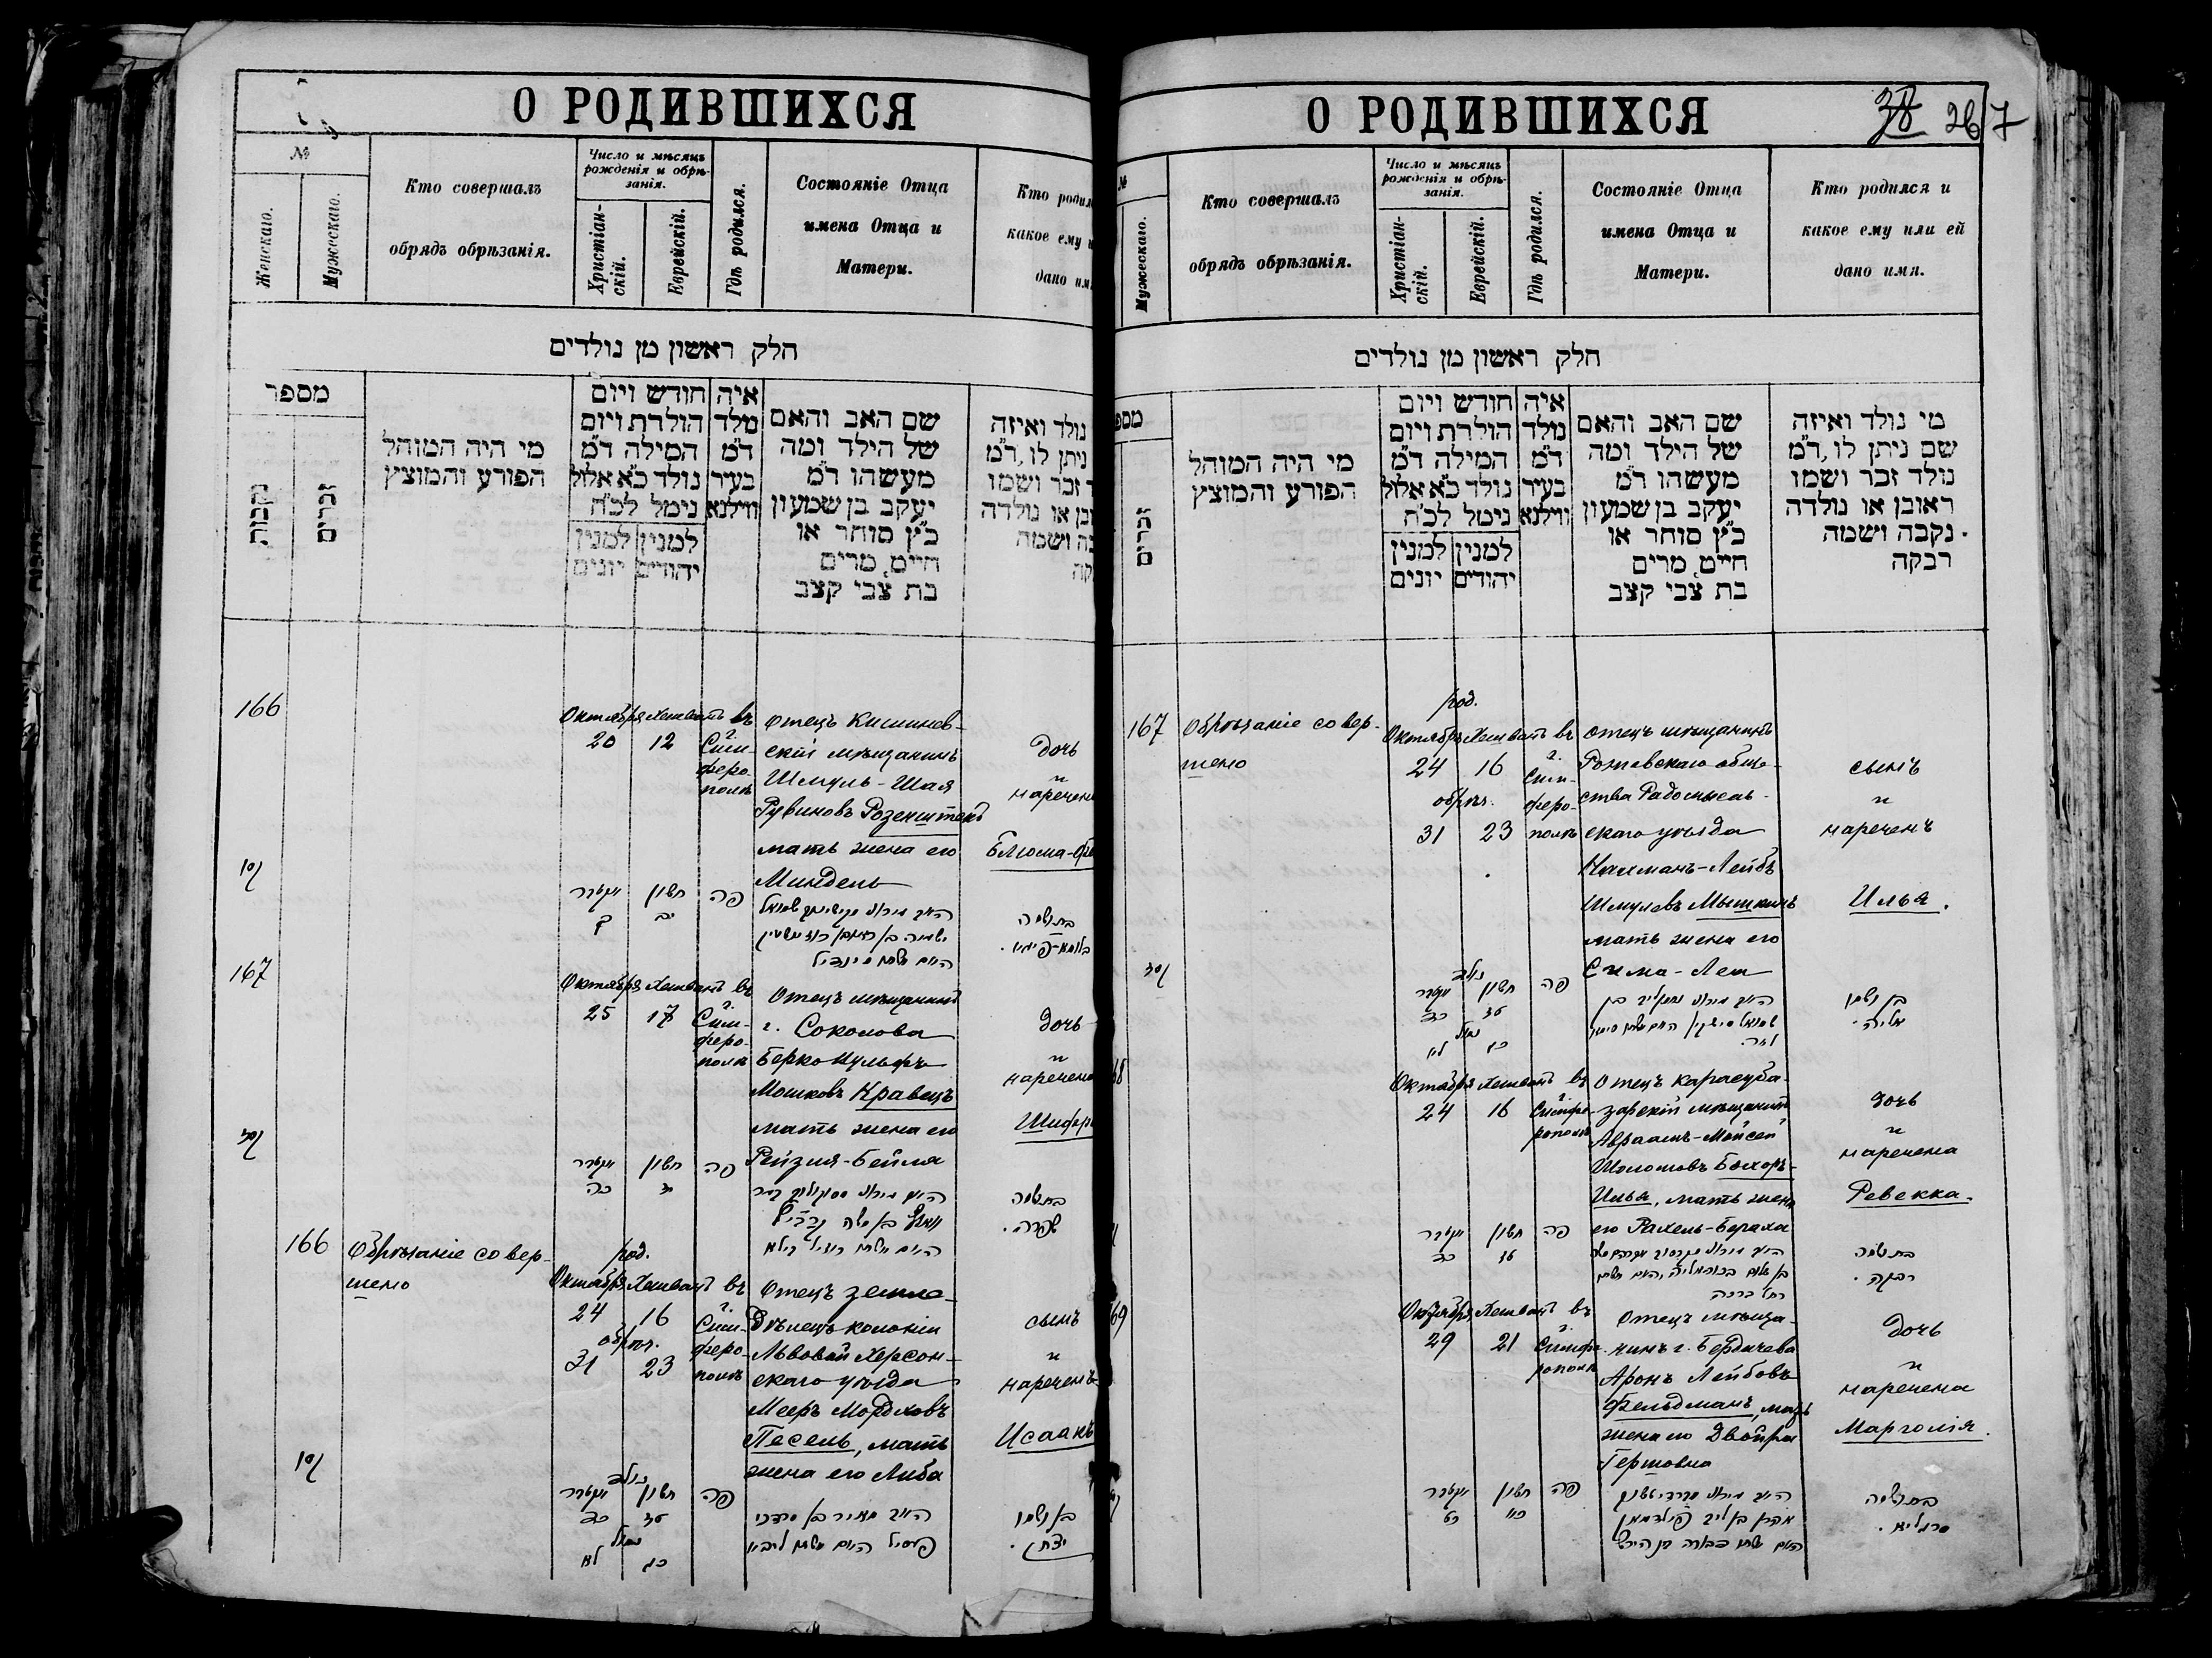 О РОДИВШИХСЯ
№
Женскаго.
Мужескаго.
Кто совершалъ
обрядъ обрѣзанія.
Число и мѣсяцъ
рожденія и обрѣ-
занія.
Христіан-
скій.
Еврейскій.
Гдѣ родился.
Состояніе Отца
имена Отца и
Матери.
Кто родил
какое ему и
дано им
חלק ראשון מן נולדים
מספר
נקבות
זכרים
מי היה המוהל
הפורע והמוצץ
חודש ויום
הולדת ויום
המילה ד"מ
נולד כ"א אלול
נימל לכ"ח
למנין
יהודים
למנין
יונים
איה
מלד
ד"מ
בעיר
ווילנא
שם האב והאם
של הילד ומה
מעשהו ד"מ
יעקב בן שמעון
כ"ץ סוחר או
חייט, מרים
בת צבי קצב
נולד ואיזה
ניתן לו, ד"מ
ד זכר ושמו
ובן או נולדה
בה ושמה
קה
166
Октября Хешванъ въ
20 12
г.
Сим-
феро-
полѣ
Отецъ Кишинев-
скій мѣщанинъ
Шмуль-Шая
Рувиновъ Розенштейнъ
мать жена его
Миндель
дочь
и
наречена
Блюма-
אקטבר חשון פה
כ יב
בת ושמה
167
Октября Хешванъ въ
25 17
г.
Сим-
феро-
полѣ
Отецъ мѣщанинъ
г. Соколова
Берко Вульфъ
Мошковъ Кравецъ
мать жена его
Рейзя-Бейля
дочь
и
наречена
Шифр
אקטבר חשון פה
כה יז
בת ושמה
שפרה.
166
Обрѣзаніе совер-
шено
род.
Октября Хешванъ въ
24 16
обрѣз.
31 23
г.
Сим-
феро-
полѣ
Отецъ земле-
дѣлецъ колоніи
Львовой Херсон-
скаго уѣзда
Мееръ Мордховъ
Песель, мать
жена его Либа
сынъ
и
нареченъ
Исаакъ
נולד
אקטבר חשון פה
כד טז
נמול
לא כג
בן ושמו
יצחק.
О РОДИВШИХСЯ
38 267
№
Мужескаго.
Кто совершалъ
обрядъ обрѣзанія.
Число и мѣсяцъ
рожденія и обрѣ-
занія.
Христіан-
скій.
Еврейскій.
Гдѣ родился.
Состояніе Отца
имена Отца и
Матери.
Кто родился и
какое ему или ей
дано имя.
חלק ראשון מן נולדים
מספ
זכרים
מי היה המוהל
הפורע והמוצץ
חודש ויום
הולדת ויום
המילה ד"מ
נולד כ"א אלול
נימל לכ"ח
למנין
יהודים
למנין
יונים
איה
מלד
ד"מ
בעיר
ווילנא
שם האב והאם
של הילד ומה
מעשהו ד"מ
יעקב בן שמעון
כ"ץ סוחר או
חייט, מרים
בת צבי קצב
מי נולד ואיזה
שם ניתן לו, ד"מ
נולד זכר ושמו
ראובן או נולדה
נקבה ושמה
רבקה
167
Обрѣзаніе совер-
шено
род.
Октябрь Хешванъ въ
24 16
обрѣз.
31 23
г.
Сим-
феро-
полѣ
Отецъ мѣщанинъ
Рожевскаго обще-
ства Радомысль-
скаго уѣзда
Нахманъ-Лейбъ
Шмулевъ Мышкинъ
мать жена его
Сима-Лея
сынъ
и
нареченъ
Илья.
נולד
אקטבר חשון פה
כד טז
נמול
לא כג
בן ושמו
אליה.
68
Октября Хешванъ въ
24 16
г.
Симфе-
рополѣ
Отецъ карасуба-
зарскій мѣщанинъ
Авраамъ-Мойсей
Шоломовъ Бохоръ-
Илья, мать жена
его Рахель-Бераха
дочь
и
наречена
Ревекка.
אקטבר חשון פה
כד טז
רחל ברכה
בת ושמה
רבקה.
69
Октября Хешванъ въ
29 21
г.
Симфе-
рополѣ
Отецъ мѣща-
нинъ г. Бердичева
Аронъ Лейбовъ
Фельдманъ, мать
жена его Двойра
Гершовна
дочь
и
наречена
Марголія.
אקטבר חשון פה
כט כא
אהרן בן ליב פילדמאן
בת ושמה
מרגליא.